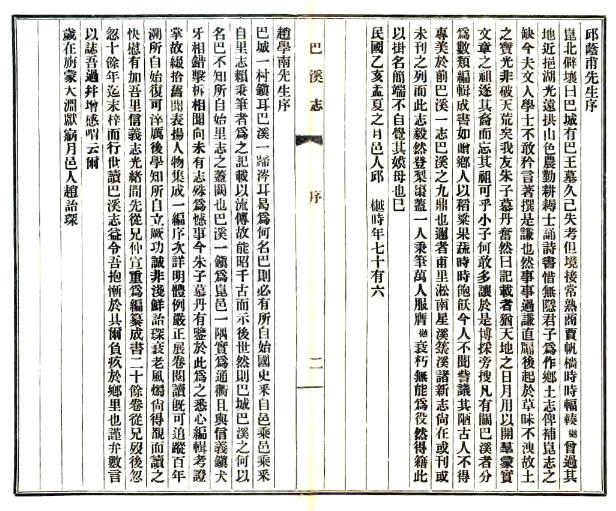 邱蔭甫先生序
崑北僻壤曰巴城有巴王墓久已失考但境接常熟商賈帆檣時時輻輳樾曾過其
地近挹湖光遠拱山色農勤耕耨士誦詩書惜無隱君子爲作鄉土志俾補崑志之
缺今夫文人學士不敢矜言著撰是謙也然事事過謙直屬後起於草味不洩故土
之寶光非破天荒矣我友朱子慕丹奮然曰記載者猶天地之日月用以開羣蒙實
文章之祖逐其裔而忘其祖可乎小子何敢多讓於是博採旁搜凡有關巴溪者分
爲數類編輯成書如噌鄉人以稻粱果蔬時時飽飫今人不聞訾議其陋古人不得
專美於前巴溪一志巴溪之九鼎也邇者甫里淞南星溪菉溪諸新志尚在或刊或
未刊之列而此志毅然登梨棗蓋一人秉筆萬人服膺樾衰朽無能爲役然得藉此
以掛名簡端不自覺其嫫母也已
民國乙亥孟夏之月邑人邱樾時年七十有六
巴溪志
序
二
趙學南先生序
巴城一村鎮耳巴溪一歸涔耳曷爲何名巴則必有所自始國史釆自邑乘邑乘釆
自里志賴秉筆者爲之記載以流傳故能昭千古而示後世然則巴城巴溪之何以
名巴不知所自始里志之蓋闕也巴溪一鎮爲崑邑一隅實爲通衢日與信義鎮犬
牙相錯擊柝相聞向未有志殊爲憾事今朱子慕丹有鑒於此爲之悉心編輯考證
掌故綴拾舊聞表揚人物集成一編序次詳明體例嚴正展卷閱讀旣可追蹤百年
溯所自始復可淬厲後學知所自立厥功誠非淺鮮詒琛衰老風燭尚得覩而讀之
快慰有加吾里信義志光緒間先從兄仲宣重爲編纂成書二十餘卷從兄歿後忽
忽十餘年迄未梓而行世讀巴溪志益令吾抱慚於其爾負疚於鄉里也謹弁數言
以誌吾過幷增感喟云爾
歲在旃蒙大淵獻病月邑人趙詒琛